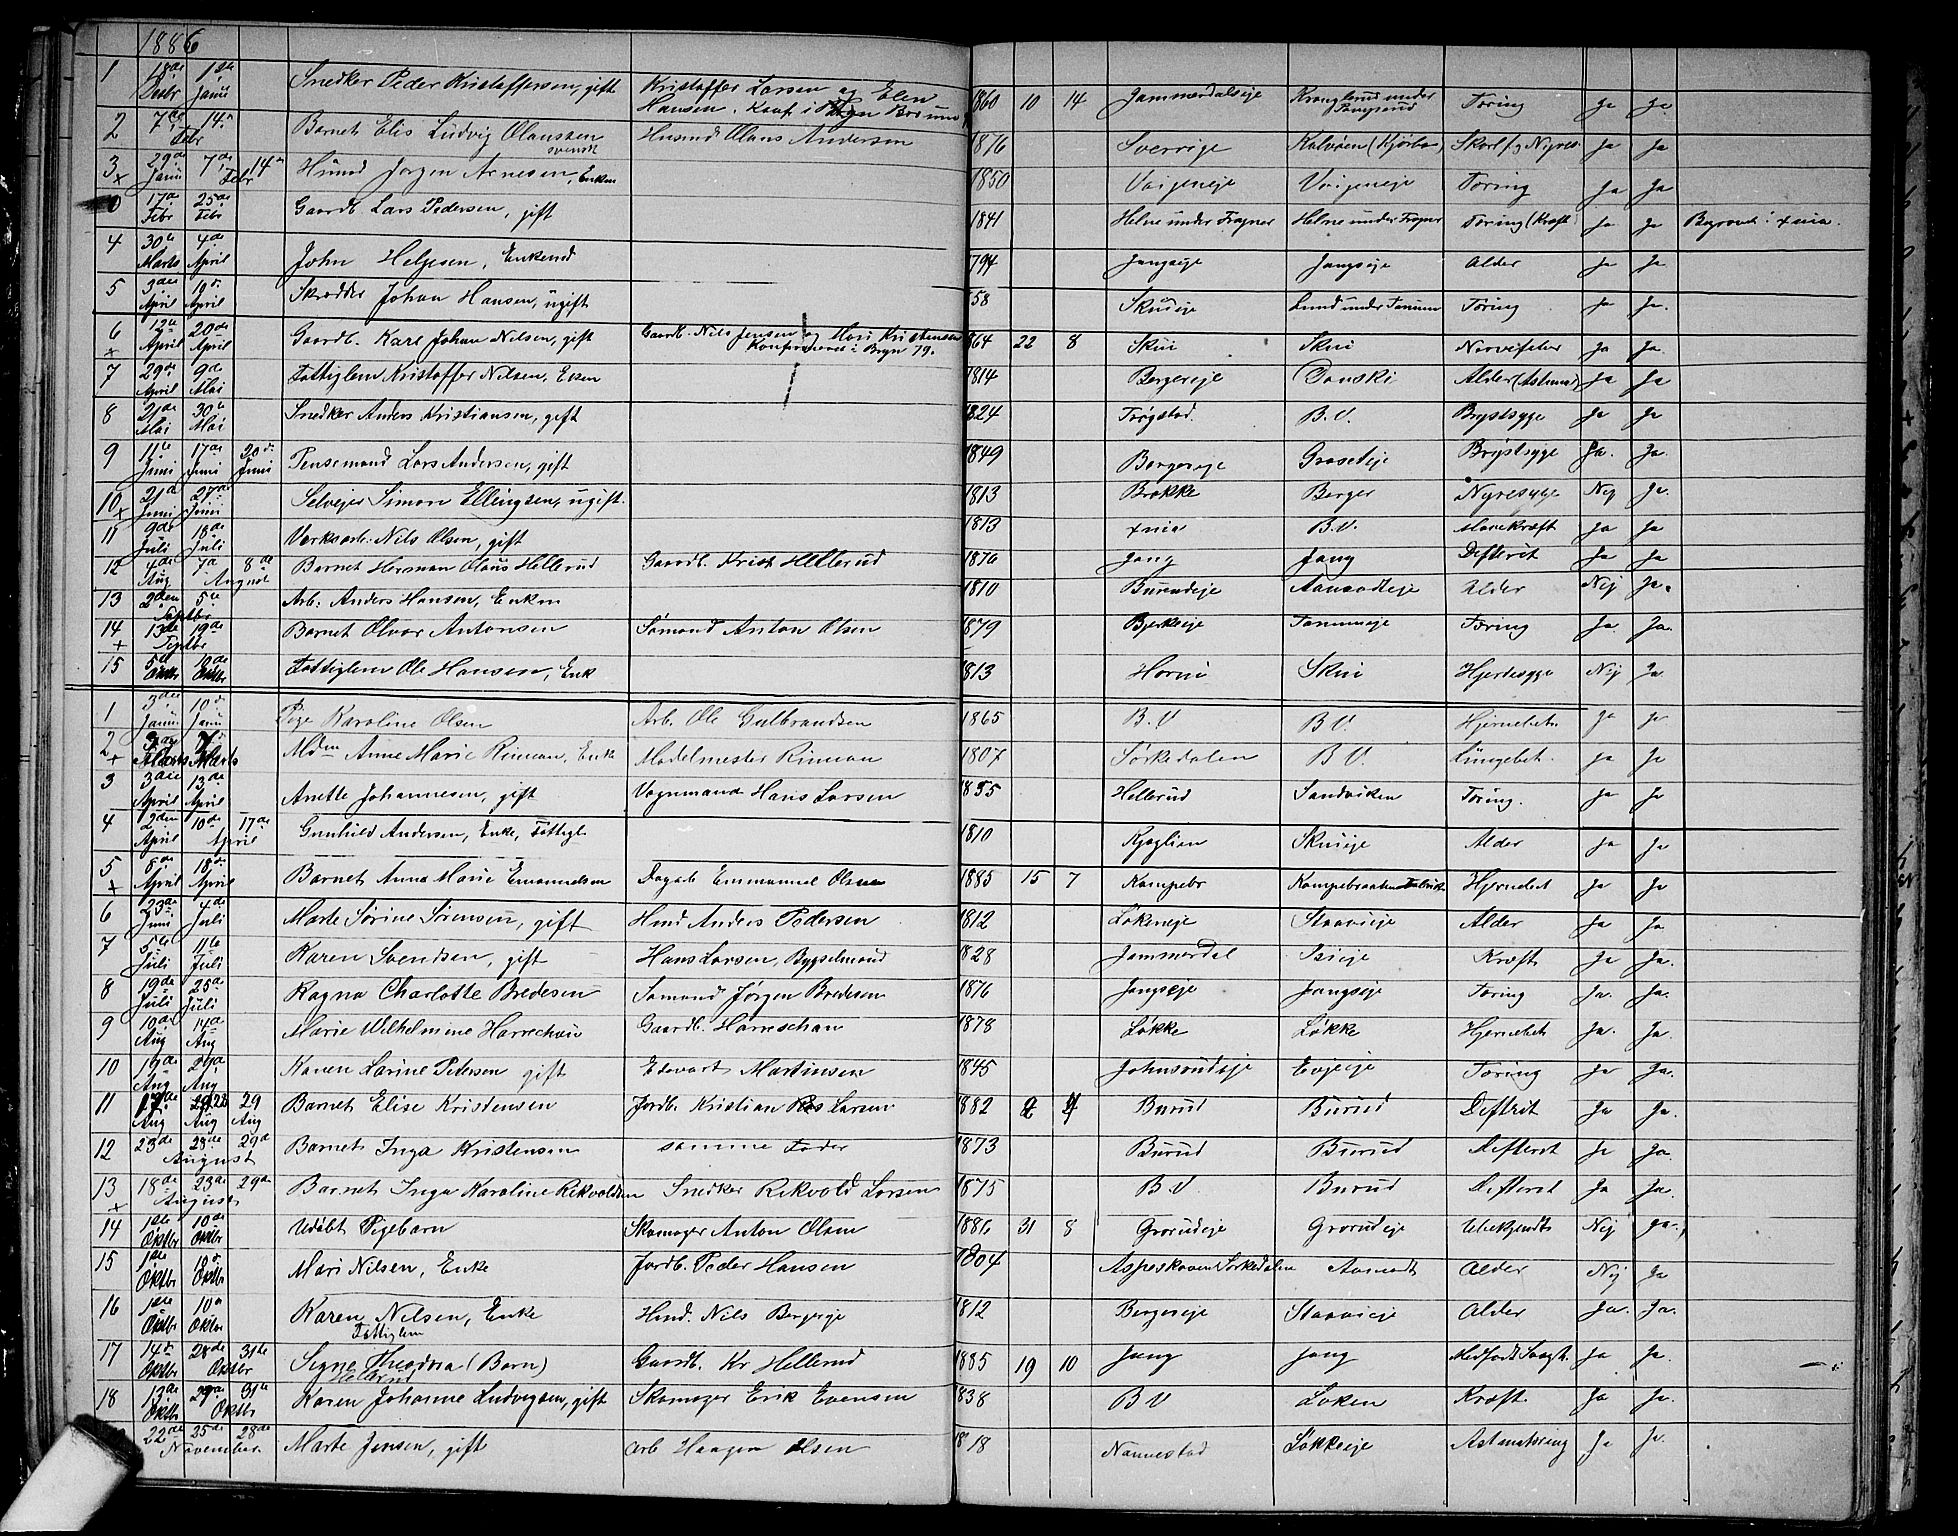 1886
1 18de Desbr 1ste Janu Snedker Peder Kristoffersen, gift Kristoffer Larsen og Elen Hansen. 1860 10 14 Jammerdalseje Tæring Ja Ja.
2 7de 14de Febr Barnet Elis Ludvig Olaussen svensk Husmd Olaus Andersen 1876 Sverrige Kalvøen (Kjørbo) Ja Ja
3 + 29de Janu 7de Febr 14de Husmd Jørgen Arnesen, Enkem 1850 Vøijeneje Vøijeneje Tæring Ja Ja
0 17de Febr 25de Febr Gaardb. Lars Pedersen, gift 1841 Helne under Frogner Helne under Frogner Tæring (Kræft) Ja Ja Begravet i Xnia.
4 30te Marts 4de April John Helgesen, Enkemd 1794 Jongseje Jongseje Alder Ja Ja
5 3die April 19de April Skrædder Johan Hansen, ugift 58 Skuieje Lund under Tanum Tæring Ja Ja.
6 + 12te April 20de April Gaardb. Karl Johan Nilsen, gift Gaardb. Nils Jensen og Mari Kristensen Konfirmeret i Bryn 79. 864 22 8 Skui Skui Nervefeber Ja Ja.
7 29de April 9de Mai Fattiglem Kristoffer Nilsen, Enkem 1814 Bergereje Danski Alder (Astma) Ja Ja
8 21de Mai 30te Mai Snedker Anders Kristiansen, gift 1824 Trøgstad. B.V. Brystsyge Ja Ja
9 11te Juni 17de Juni 20de Juni Pensmand Lars Andersen, gift 1849 Bergereje Grøseteje Brystsyge Ja. Ja.
10 + 21de Juni 27de Juni Selvejer Simon Ellingsen, ugift. 1813 Brække Berger Nyresyge Nej Ja.
11 9de Juli 18de Juli Værksarb. Nils Olsen, gift 1813 Xnia B.V. Mavekræft Ja Ja
12 4de Aug 7de 8de August Barnet Herman Olaus Hellerud Gaardb. Krist Hellerud 1876 Jong Jong Defterit Ja Ja
13 2den 5te Septbr Arb. Anders Hansen, Enkem 1810 Burudeje Aamodteje Alder Nej Ja.
14 + 13de 19de Septbr Barnet Olvar Antonsen Sømand Anton Olsen 1879 Bjerkeeje Tanumeje Tæring Ja. Ja.
15 5te Oktbr 10de Oktbr Fattiglem Ole Hansen, Enk 1813 Horni Skui Hjertesyge Nej Ja
1 3die Janu 10de Janu Pige Karoline Olsen Arb. Ole Gulbrandsen 1865 B.V B.V. Hjernebet. Ja Ja
2 + Marts 7de Marts Anne Marie Rinman, Enke Modelmester Rinman 1807 Sørkedalen B V. Lungebet. Ja Ja
3 3die April 13de April Anette Johannesen, gift Vognmand Hans Larsen 1835 Hellerud Sandviken Tæring. Ja Ja
4 2den April 10de 17de April Gunhild Andersen, Enke, Fattigl 1810 Kjaglien Skuieje Alder Ja Ja
5 + 8de April 18de April Barnet Anna Marie Emanuelsen Dagab Emmanuel Olsen 1885 15 7 Kampebr Hjernebet Ja Ja
6 23de Juni 4de Juli Marte Sørine Sørensen, gift Husmd Anders Pedersen 1812 Løkeneje Staaveeje Alder Ja Ja
7 5te Juli 11te Juli Karen Svendsen, gift Hans Larsen, Bygselmand 1828 Jammerdal Isieje Kræft Ja Ja.
8 19de Juli 25de Juli Ragna Charlotte Bredesen Sømand Jørgen Bredesen 1876 Jongseje Jongseje Tæring Ja. Ja.
9 10de Aug 14de Aug Marie Wilhelmine Harreschou Gaardb. Harreschou 1878 Løkke Løkke Hjernebet Ja. Ja.
10 19de Aug 29de Aug Karen Larine Pedersen gift Edevart Martinsen 1845 Johnsrudeje Evjeeje Tæring Ja Ja.
11 17de Aug 22 Aug 29 Aug Barnet Elise Kristensen Jordb. Kristian Larsen 1882 2 4 Burud Burud Defterit Ja Ja.
12 23de 28de 29de August Barnet Inga Kristensen samme Fader 1873 Burud Burud Defterit Ja Ja.
13 + 18de 23de 29de August Barnet Inga Karoline Rikvoldsen Snedker Rikvold Larsen 1875 B.V Burud Defterit Ja Ja.
14 1ste Oktbr 10de Oktbr Udøbt Pigebarn Skomager Anton Olsen 1886 31 8 Grorudeje Grorudeje Ubekjendt Nej Ja.
15 1ste Oktbr 10de Oktbr Mari Nilsen, Enke Jordb. Peder Hansen 1804 Aspeskoven Sørkedalen Aamodt Alder Nej Ja
16 1ste Oktbr 10de Oktbr Karen Nilsen, Enke Fattiglem Husmd. Nils Bergereje 1812 Bergereje Staaveeje Alder Ja. Ja.
17 14de Oktbr 28de 31te Oktbr Signe Theodora (Barn) Hellerud Gaardb. Kr Hellerud 1885 19 10 Jong Jong Medfødt Svagh. Ja Ja
18 13de Oktbr 29de 31te Oktbr Karen Johanne Ludvigsen, gift Skomager Erik Evensen 1838 B V Løken Kræft. Ja Ja.
22de 25de 28de November Marte Jensen, gift Arb Haagen Olsen 18 18 Nannestad Løkkeeje Astma Ja Ja.